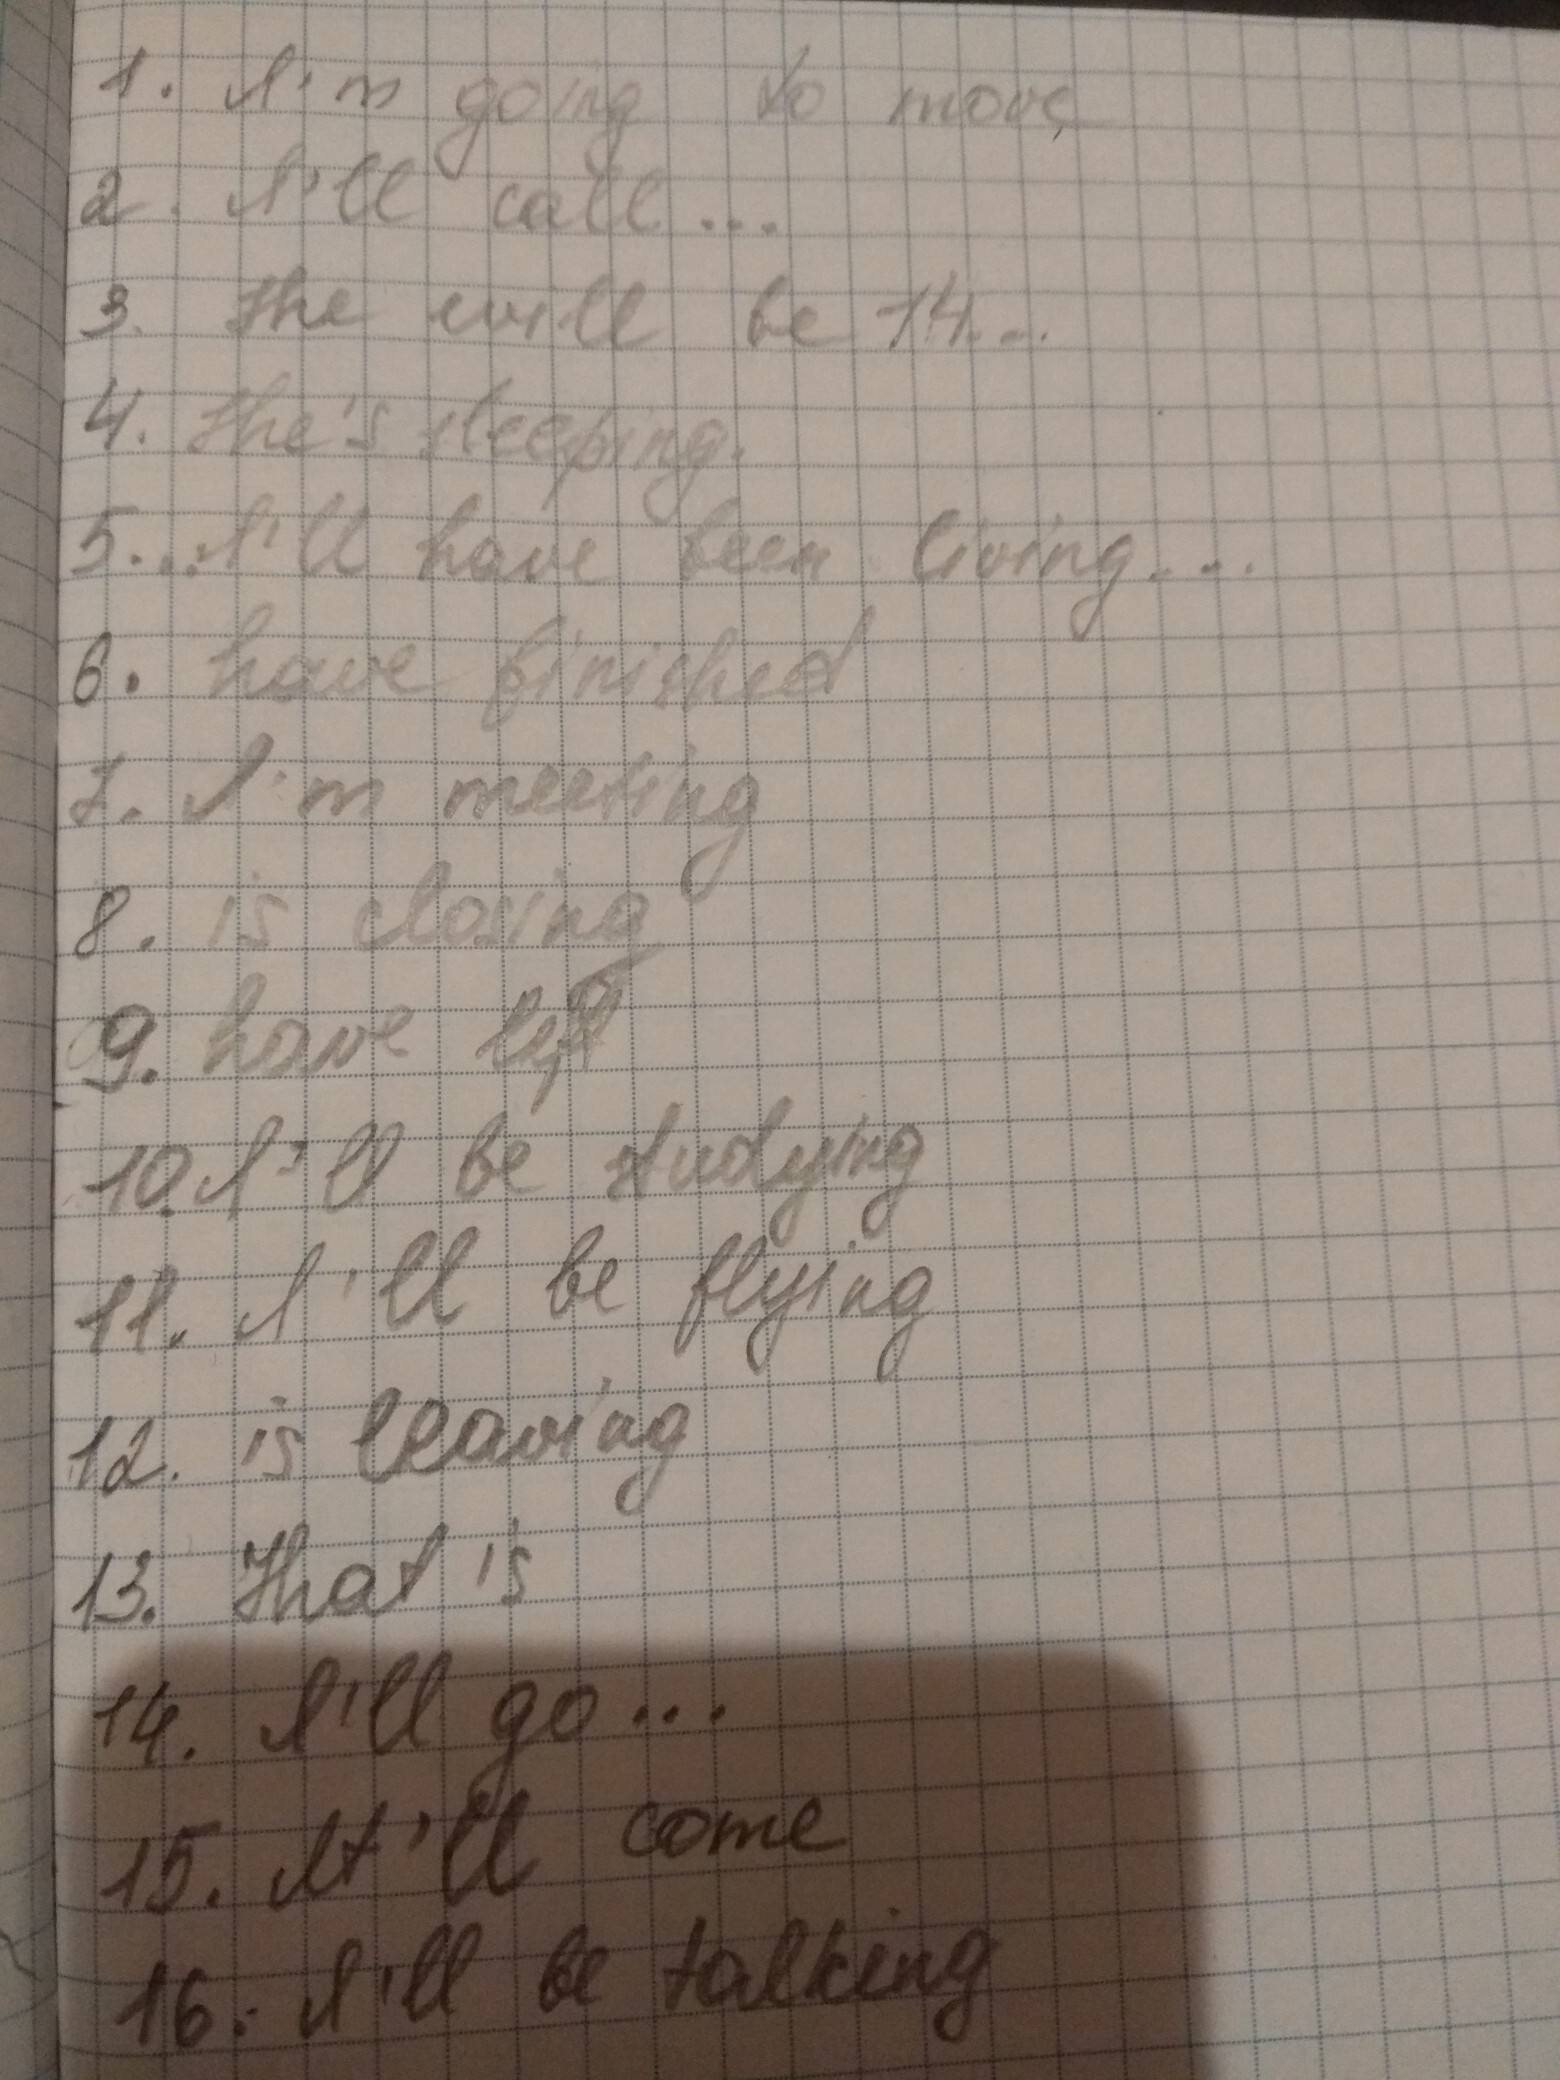 1. I'm going to move
2. I'll call...
3. She will be 14...
4. She's sleeping.
5. ..I'll have been living....
6. have finished
7. I'm meeting
8. is closing
9. have left
10. I'll be studying
11. I'll be flying
12. is leaving
13. That is
14. I'll go...
15. It'll come
16. I'll be talking